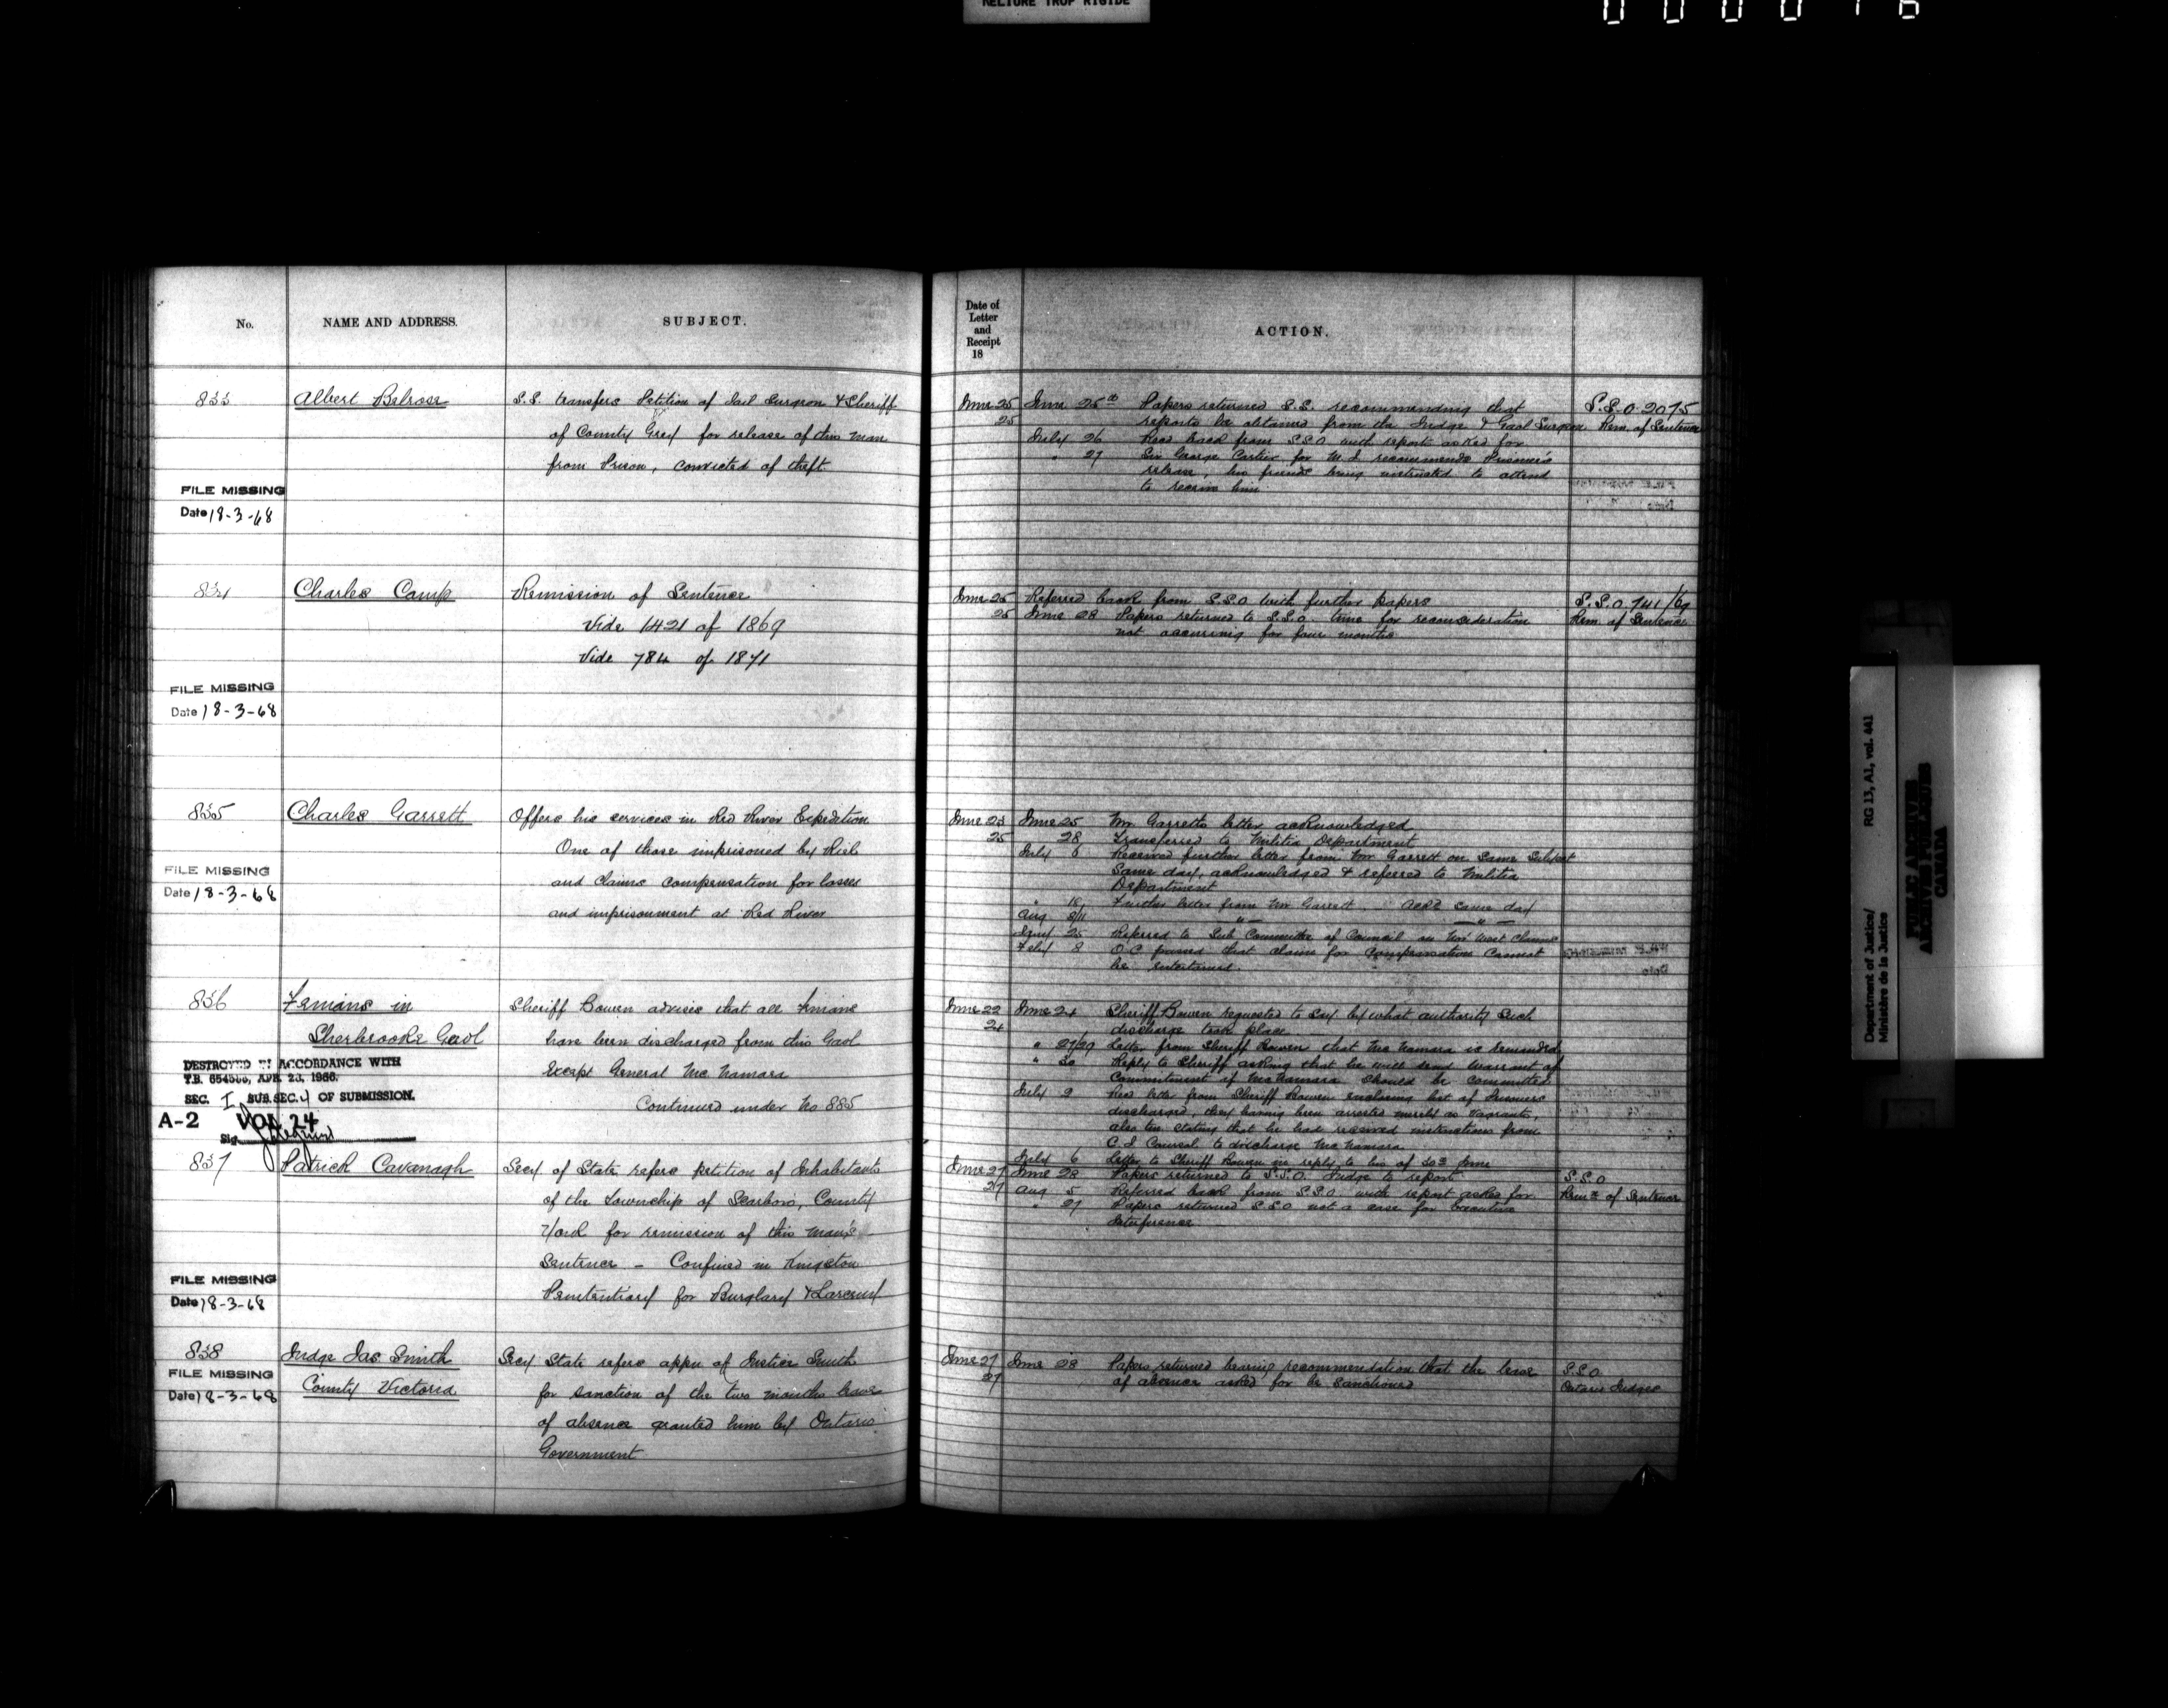 RELIURE TROP RIGIDE
No.
NAME AND ADDRESS.
SUBJECT.
833
Albert Belrose
S.S. transfers Petition of Jail Surgeon & Sheriff
of County Grey for release of this man
from Prison, convicted of theft
FILE MISSING
Date 18-3-68
834
Charles Camp
Remission of Sentence
Vide 1421 of 1869
Vide 784 of 1871
FILE MISSING
Date 18-3-68
835
Charles Garrett
Offers his services in Red River Expedition
One of those imprisoned by Riel
and claims compensation for losses
and imprisonment at Red River
FILE MISSING
Date 18-3-68
836
Fenians in
Sherbrooke Gaol
Sheriff Bowen advises that all Fenians
have been discharged from this Gaol
Except General McNamara
Continued under No 885
DESTROYED IN ACCORDANCE WITH
T.B. APR. 23, 1966.
SEC. I SUB.SEC. 4 OF SUBMISSION.
A-2 VOL 24
Sig
837
Patrick Cavanagh
Secy of State refers petition of Inhabitants
of the Township of Scarboro, County
York for remission of this man's
Sentence - Confined in Kingston
Penitentiary for Burglary & Larceny
FILE MISSING
Date 18-3-68
838
Judge Jas Smith
County Victoria
Secy State refers appn of Justice Smith
for sanction of the two months leave
of absence granted him by Ontario
Government
FILE MISSING
Date 18-3-68
Date of
Letter
and
Receipt
18
ACTION.
June 25
25
June 25th Papers returned S.S. recommending that
reports be obtained from the Judge & Gaol Surgeon
July 26 Recd back from S.S.O with report asked for
" 27 Sir George Cartier for M.J. recommends Prisoner's
release, his friends being instructed to attend
to receive him
S.S.O. 2075
Rem. of Sentence
June 25
25
Referred back from S.S.O with further papers
June 28 Papers returned to S.S.O. time for reconsideration
not occurring for four months
S.S.O. 741/69
Rem. of Sentence
June 23
25
June 25 Mr Garretts letter acknowledged
28 Transferred to Militia Department
July 8 Received further letter from Mr Garrett on Same Subject
Same day, acknowledged & referred to Militia
Department
" 18 Further letter from Mr Garrett. Ackd same day
Aug 8/11 " "
Jany 25 Referred to Sub Committee of Council on Nor West Claims
Feby 8 O.C. passed that claim for Compensation Cannot
be entertained.
June 22
24
June 24 Sheriff Bowen requested to say by what authority such
discharge took place
" 27/29 Letter from Sheriff Bowen that McNamara is remanded
" 30 Reply to Sheriff asking that he will send warrant of
Commitment if McNamara should be committed
July 9 Recd letter from Sheriff Bowen enclosing list of Prisoners
discharged, they having been arrested merely as Vagrants,
also stating that he had received instructions from
Counsel to discharge McNamara
July 6 Letter to Sheriff Bowen in reply to his of 30th June
June 27
27
June 28 Papers returned to S.S.O. Judge to report
Aug 5 Referred back from S.S.O. with report asked for
" 27 Papers returned S.S.O not a case for Executive
Interference
S.S.O
Remn of Sentence
June 27
27
June 28 Papers returned bearing recommendation that the leave
of absence asked for be sanctioned
S.S.O.
Ontario Judges
Department of Justice/
Ministère de la Justice
RG 13, A1, vol. 441
PUBLIC ARCHIVES
ARCHIVES PUBLIQUES
CANADA